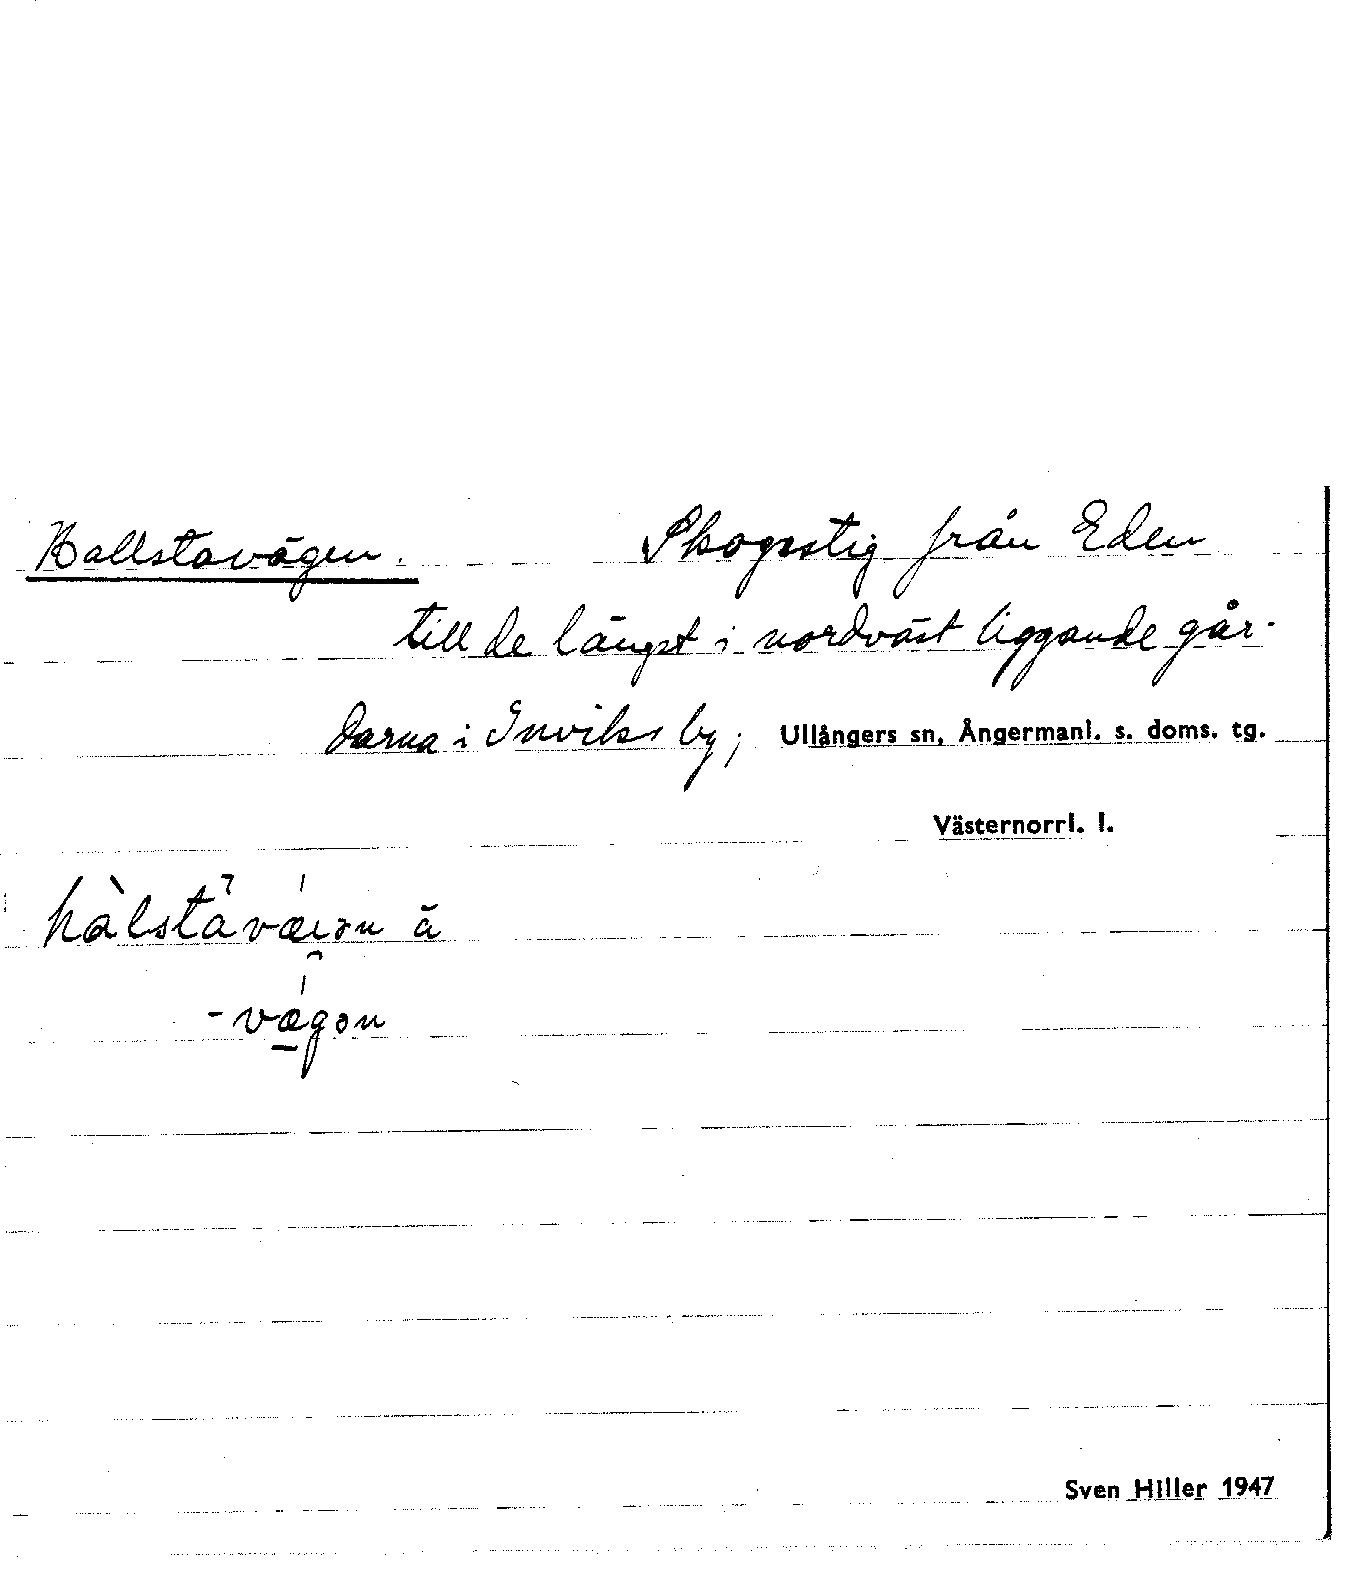 Hallstavägen. Skogsstig från Eden
till de längst i nordväst liggande går-
darna i Inviks by; Ullångers sn, Ångermanl. s. doms. tg.
Västernorrl. l.
Sven Hiller 1947